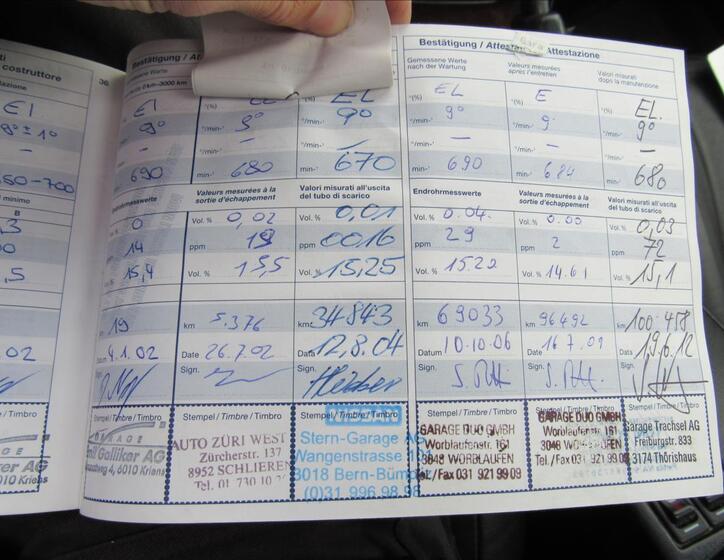 costruttore
tazione
EI
9° ± 1°
50-700
i minimo
B
,3
00
,5
.02
36
Bestätigung / Atte
Gemessene Werte
EI
EL
"(%)
"(%)
9°
9°
9°
"/min-¹
–
–
–
690
680
670
min-¹
min-¹
Endrohrmesswerte
Valeurs mesurées à la
sortie d'échappement
Valori misurati all'uscita
del tubo di scarico
0
Vol. % 0,02
Vol. % 0,01
14
ppm
ppm 0016
15,4
Vol. % 15,5
Vol. % 15,25
19
km 5.376
km 34843
Datum 4.1.02
Date 26.7.02
Data 12.8.04
Sign.
Sign.
Stempel / Timbre / Timbro
Stempel / Timbre / Timbro
Stempel / Timbre / Timbro
GARAGE
Galliker AG
6010 Kriens
AUTO ZÜRI WEST
Zürcherstr. 137
8952 SCHLIEREN
Tel. 01 730 10
NISSAN
Stern-Garage AG
Wangenstrasse 1
3018 Bern-Bümp
(0)31 996 98 98
Bestätigung / Attestation / Attestazione
Gemessene Werte
nach der Wartung
Valeurs mesurées
après l'entretien
Valori misurati
dopo la manutenzione
"(%) EL
"(%) E
"(%) EL.
9°
9
9°
–
–
–
min-¹ 690
min-¹ 684
min-¹ 680
Endrohrmesswerte
Valeurs mesurées à la
sortie d'échappement
Valori misurati all'uscita
del tubo di scarico
Vol. % 0.04
Vol. % 0.00
Vol. % 0,03
ppm 29
ppm 2
ppm 72
Vol. % 15.22
Vol. % 14.61
Vol. % 15,1
km 69033
km 96492
km 100.458
Datum 10.10.06
Date 16.7.09
Data 19.6.12
Sign.
Sign.
Sign.
Stempel / Timbre / Timbro
Stempel / Timbre / Timbro
Stempel / Timbre / Timbro
GARAGE DUO GMBH
Worblaufenstr. 161
3048 WORBLAUFEN
Tel./Fax 031 921 99 09
GARAGE DUO GMBH
Worblaufenstr. 161
3048 WORBLAUFEN
Tel./Fax 031 921 99 09
Garage Trachsel AG
Freiburgstr. 833
3174 Thörishaus